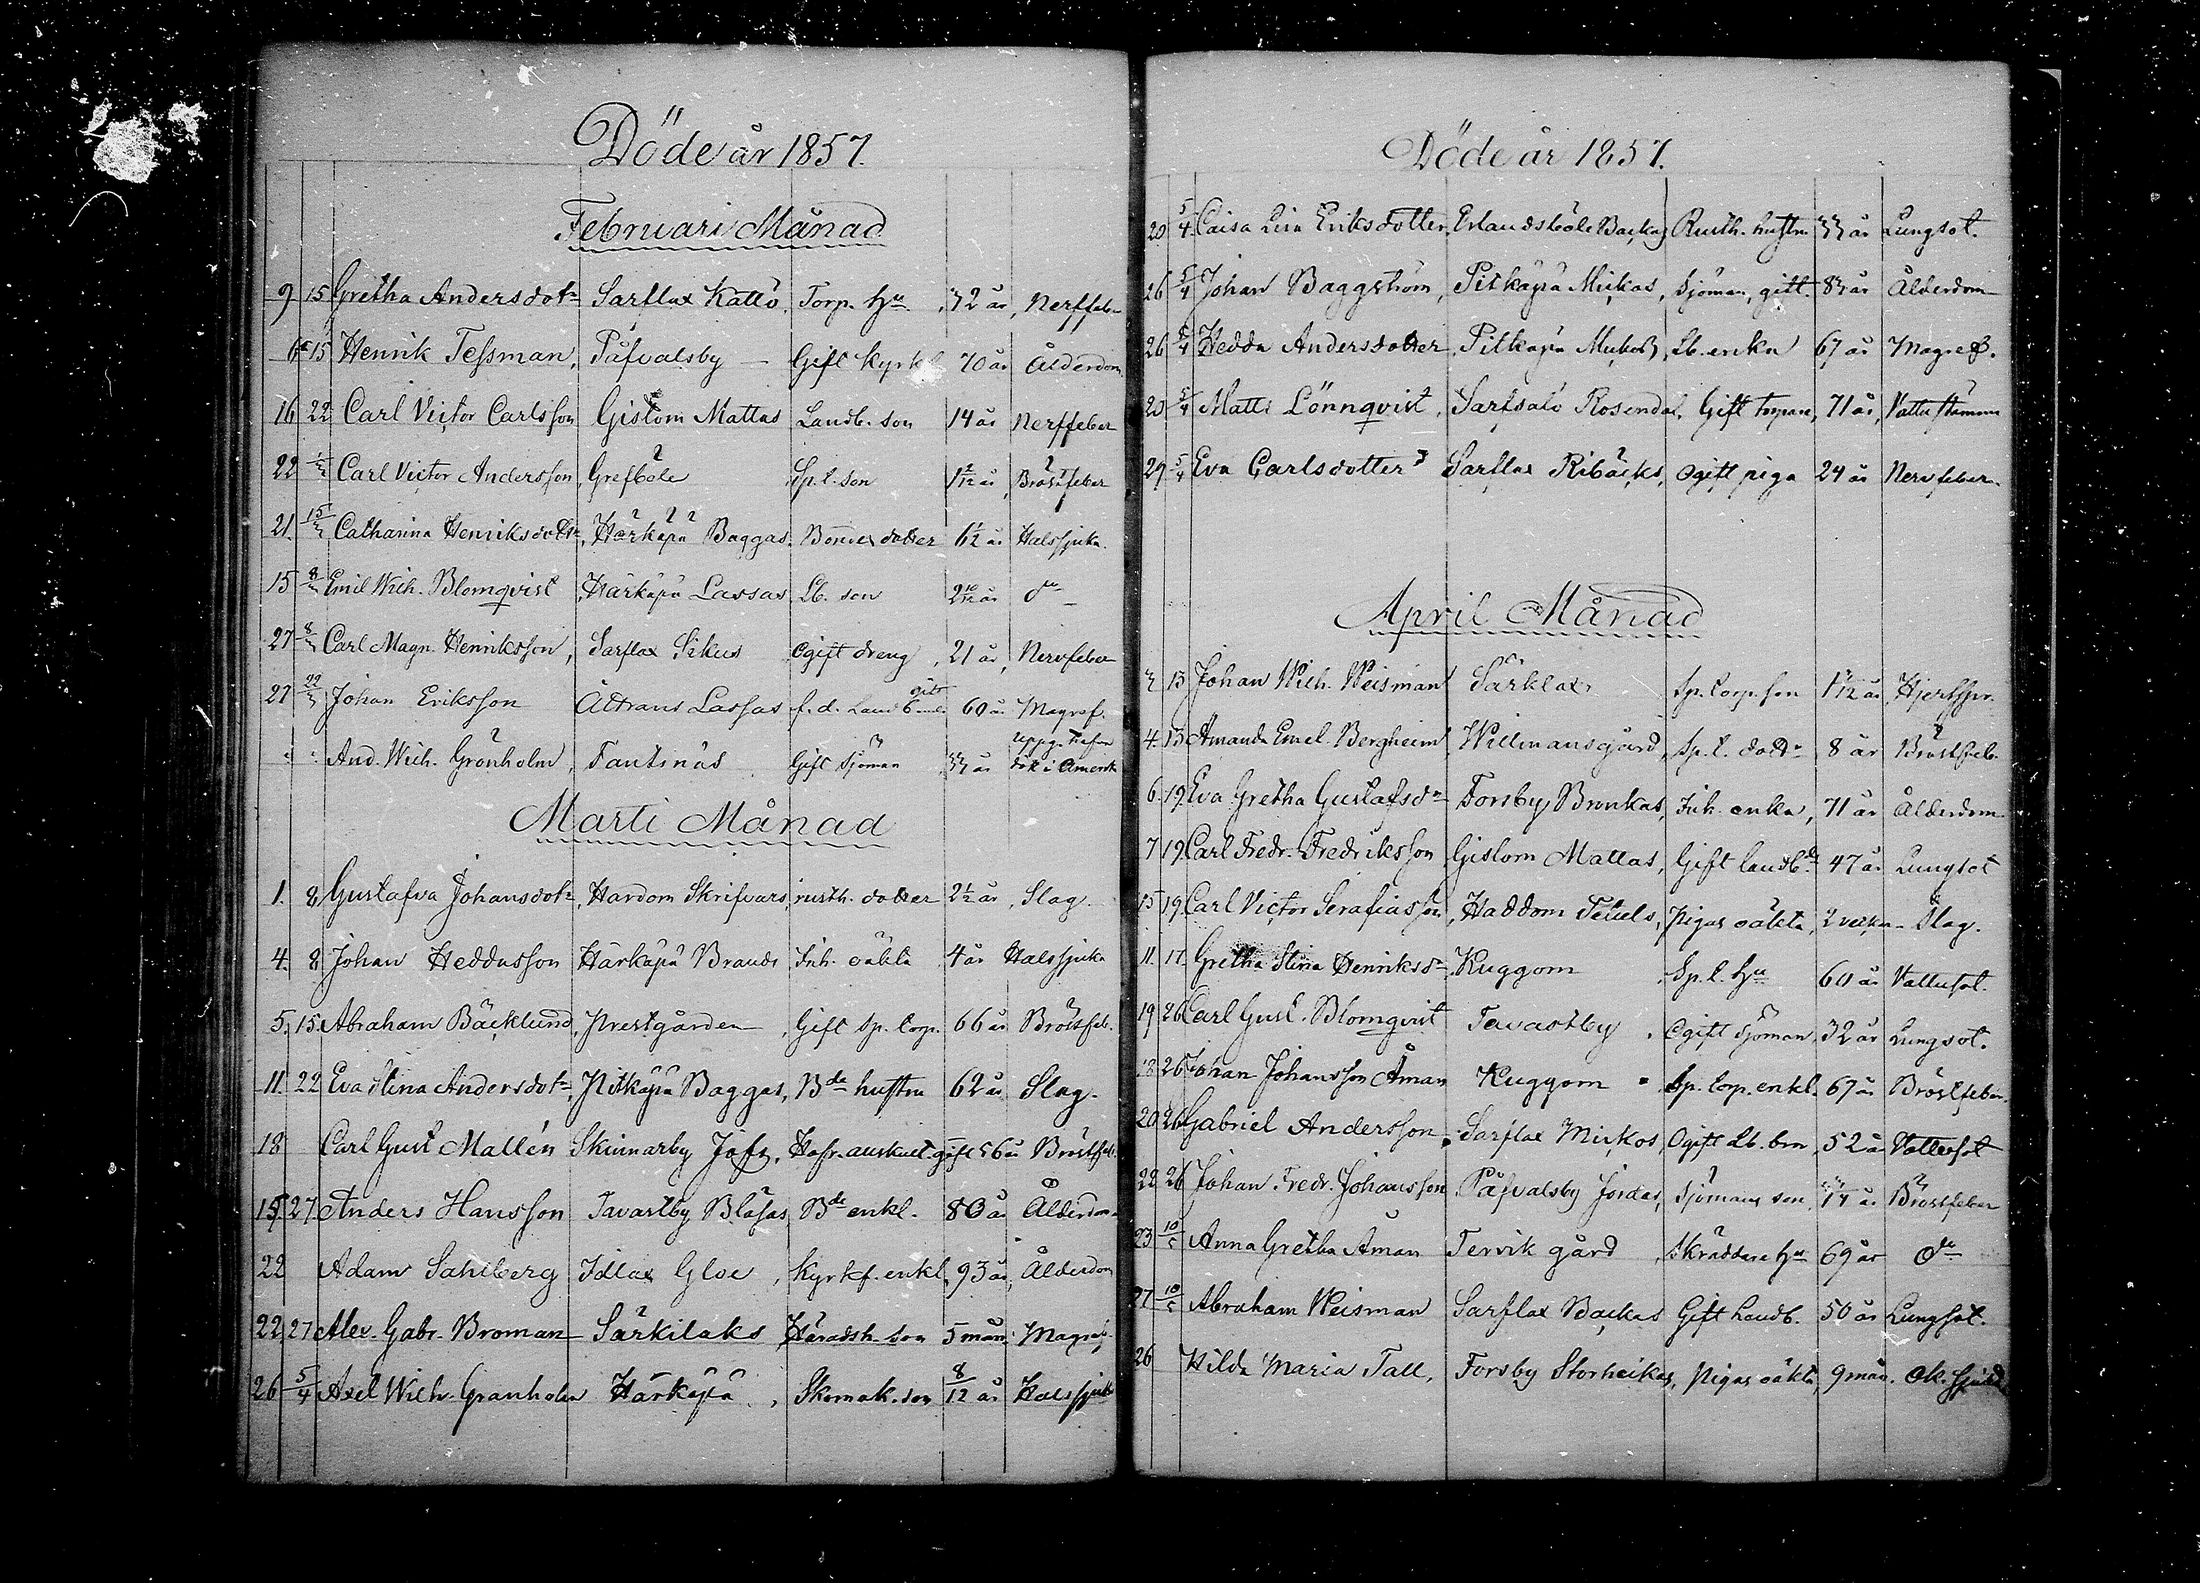 Döde år 1857.
Februari Månad
9 15 Gretha Andersdotr Sarflax Kallö, Torp. hu 32 år, Nerffeber
6 15 Henrik Tessman, Påfvalsby Gift Kyrk 70 år Ålderdom
16 22 Carl Victor Carlsson Gislom Mattas Landb. son 14 år Nerffeber
22 1/3 Carl Victor Andersson, Grefböle Sp. l. son 1 2/12 år Bröstfeber
21. 15/3 Catharina Henriksdottr, Härkäpä Baggas. Bondes dotter 6 1/2 år Halssjuka.
15 8/3 Emil Wilh. Blomqvist Härkäpä Lassas Lb. son 2 10/12 år do
27 8/3 Carl Magn. Henriksson, Sarflax Sikus Ogift dreng, 21 år, Nervfeber
27 22/3 Johan Eriksson Åttrans Lassas f. d. Landb gift 60 år Magref.
And. Wilh. Grönholm, Fantsnäs Gift Sjöman 33 år i Amerik
Marti Månad
1. 8 Gustafva Johansdotr, Hardom Skrifvars, rusth. dotter 2 1/2 år, Slag.
4. 8 Johan Heddasson Härkäpä Brands Inh. oäkta 4 år Halssjuka
5. 15. Abraham Bäcklund, Prestgården Gift Sp. torp. 66 år Bröstfeb.
11. 22 Eva Stina Andersdotr, Pitkäpä Baggas, Bde hustru 62 år Slag.
18 Carl Gust Mallén Skinnarby Jofs, Hofr. auskult. gift 56 år Bröstfeb.
15 27 Anders Hansson Tavastby Blåsas Bde enkl. 80 år Ålderdom
22 Adam Sahlberg Idlax Gloe, Kyrkf. enkl. 93 år, Ålderdom
22 27 Alex. Gabr. Broman Särkilaks Häradsh. son 5 mån. Magref.
26 5/4 Axel Wilh. Granholm Härkäpä, Skomak. son 8/12 år Halssjuka
Döde år 1857.
20 5/4 Caisa Lisa Eriksdotter, Erlandsböle Backas Rusth. hustru 33 år Lungsot.
26 5/4 Johan Baggström, Pitkäpä Mickas, Sjöman, gift. 83 år Ålderdom
26 5/4 Hedda Andersdotter, Pitkäpä Mickos, Lb. enka 67 år Magref.
20 5/4 Matts Lönnqvist, Sarfsalö Rosendal, Gift torpare, 71 år, Vattustämma
29 5/4 Eva Carlsdotter Sarflax Ribäcks, Ogift piga 24 år Nervfeber
April Månad
3 13 Johan Wilh. Weisman Särklax Sp. torp. son 1 1/12 år, Hjertspr.
4. 13 Amanda Emel. Bergheim, Willmansgård, Sp. l. dottr 8 år Bröstfeb.
6. 19 Eva Gretha Gustafsdr Forsby Brinkas, Inh. enka, 71 år Ålderdom
7 19 Carl Fredr. Fredriksson Gislom Mattas, Gift landbde 47 år Lungsot
15 19 Carl Victor Serafiasson, Haddom Teuels, Pigas oäkta, 2 veckor Slag.
11. 17. Gretha Stina Henriksdr, Kuggom Sp. l. hu 60 år Vattusot.
19 26 Carl Gust. Blomqvist Tavastby, Ogift Sjöman, 32 år Lungsot.
18 26 Johan Johansson Åman Kuggom Sp. torp. enkl. 67 år Bröstfeber.
20 26 Gabriel Andersson, Sarflax Mickos, Ogift Lb. bror, 52 år Vattusot
22 26 Johan Fredr. Johansson, Påfvalsby Jordas, Sjömans son år Bröstfeber
23 10/5 Anna Gretha Åman Tervik gård, Skräddare hu 69 år do
27 10/5 Abraham Weisman Sarflax Backas Gift Landb. 50 år Lungsot.
26 Hilda Maria Tall, Forsby Storheikas, Pigas oäkta, 9 mån. Ok. Sjukd.